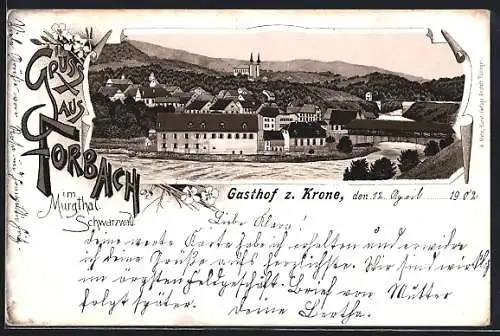 GRUSS
AUS
FORBACH
im
Murgthal
Schwarzwald
Gasthof z. Krone, den 12. April 1902
Liebe Klara!
deine werte Karte habe ich erhalten und erwidre
ich deine Grüße aufs herzlichste. Wir sind wirklich
im ärgsten Feldgeschäft. Brief von Mutter
folgt später. deine Bertha.